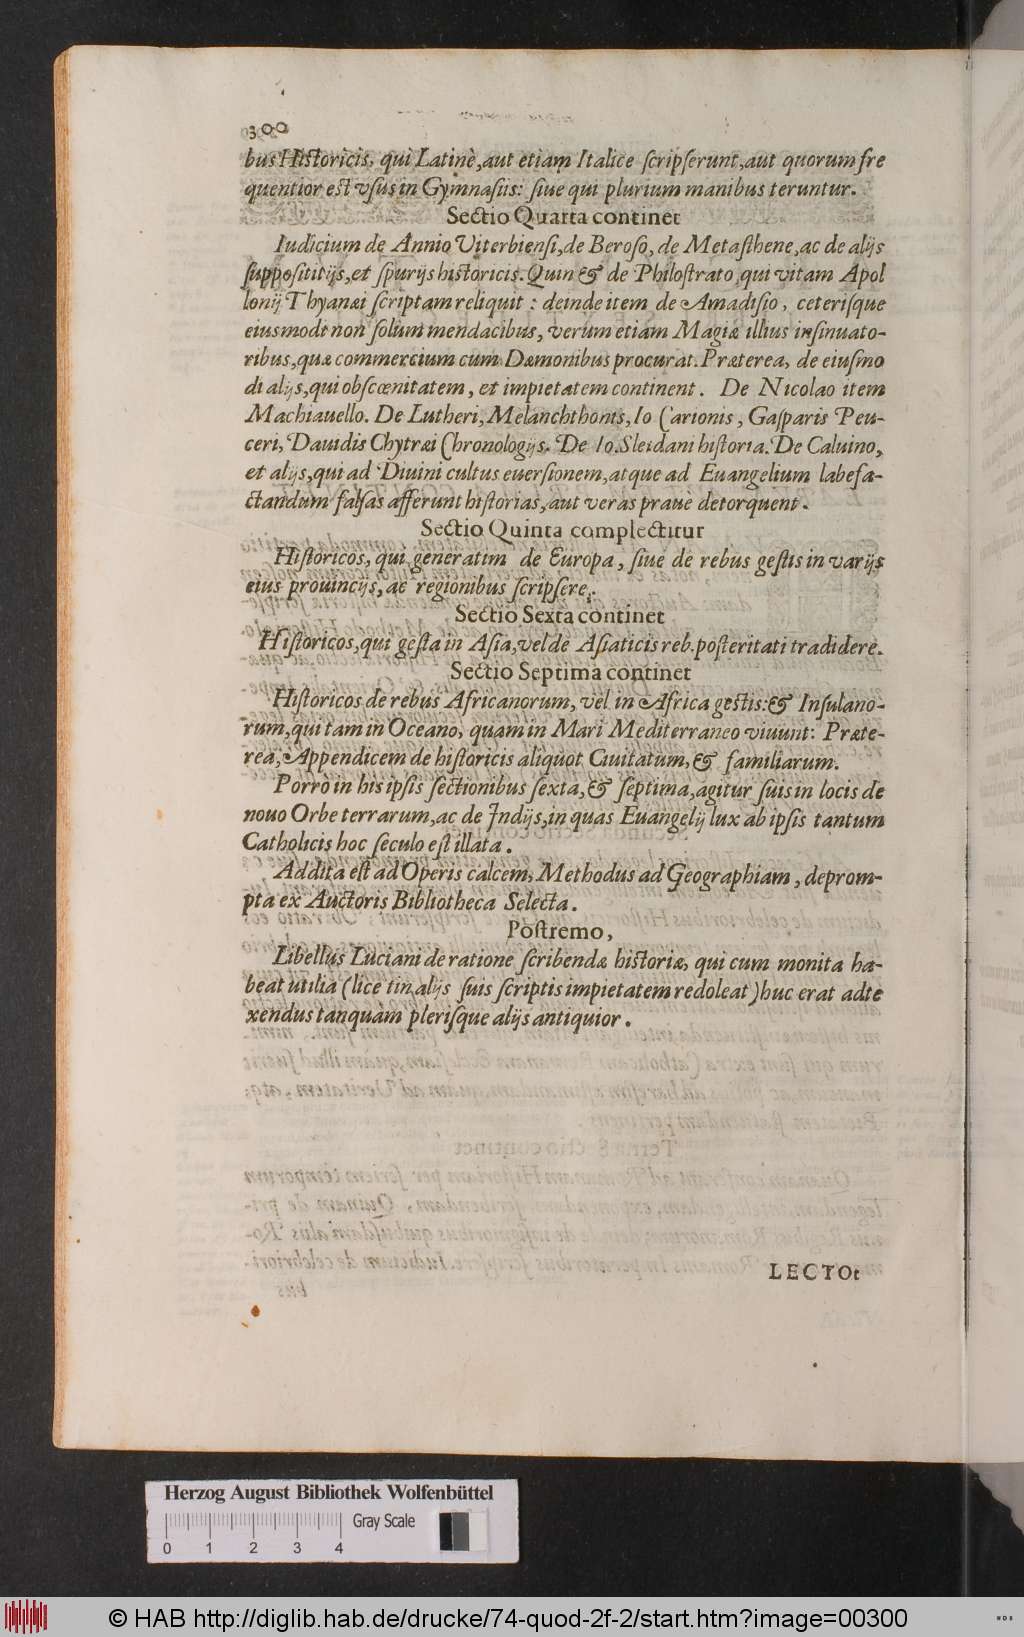 300
bus Historicis, qui Latinè, aut etiam Italice scripserunt, aut quorum fre
quentior est vsus in Gymnasiis: siue qui plurium manibus teruntur.
Sectio Quarta continet
Iudicium de Annio Viterbiensi, de Beroso, de Metasthene, ac de alijs
supposititijs, et spurijs historicis. Quin & de Philostrato, qui vitam Apol
lonij Thyanæi scriptam reliquit: deinde item de Amadisio, ceterisque
eiusmodi non solum mendacibus, verum etiam Magiæ illius insinuato-
ribus, quæ commercium cum Dæmonibus procurat. Præterea, de eiusmo
di alijs, qui obscœnitatem, et impietatem continent. De Nicolao item
Machiauello. De Lutheri, Melanchthonis, Io Carionis, Gasparis Peu-
ceri, Dauidis Chytræi Chronologijs. De Io. Sleidani historia. De Caluino,
et alijs, qui ad Diuini cultus euersionem, atque ad Euangelium labefa-
ctandum falsas afferunt historias, aut veras prauè detorquent.
Sectio Quinta complectitur
Historicos, qui generatim de Europa, siue de rebus gestis in varijs
eius prouincijs, ac regionibus scripsere.
Sectio Sexta continet
Historicos, qui gesta in Asia, vel de Asiaticis reb. posteritati tradidere.
Sectio Septima continet
Historicos de rebus Africanorum, vel in Africa gestis: & Insulano-
rum, qui tam in Oceano, quam in Mari Mediterraneo viuunt: Præte-
rea, Appendicem de historicis aliquot Ciuitatum, & familiarum.
Porrò in his ipsis sectionibus sexta, & septima, agitur suis in locis de
nouo Orbe terrarum, ac de Indijs, in quas Euangelij lux ab ipsis tantum
Catholicis hoc seculo est illata.
Addita est ad Operis calcem, Methodus ad Geographiam, deprom-
pta ex Auctoris Bibliotheca Selecta.
Postremo,
Libellus Luciani de ratione scribendæ historiæ, qui cum monita ha-
beat utilia (lice tin alijs suis scriptis impietatem redoleat) huc erat adte
xendus tanquàm plerisque alijs antiquior.
LECTOr
Herzog August Bibliothek Wolfenbüttel
Gray Scale
0 1 2 3 4
© HAB http://diglib.hab.de/drucke/74-quod-2f-2/start.htm?image=00300